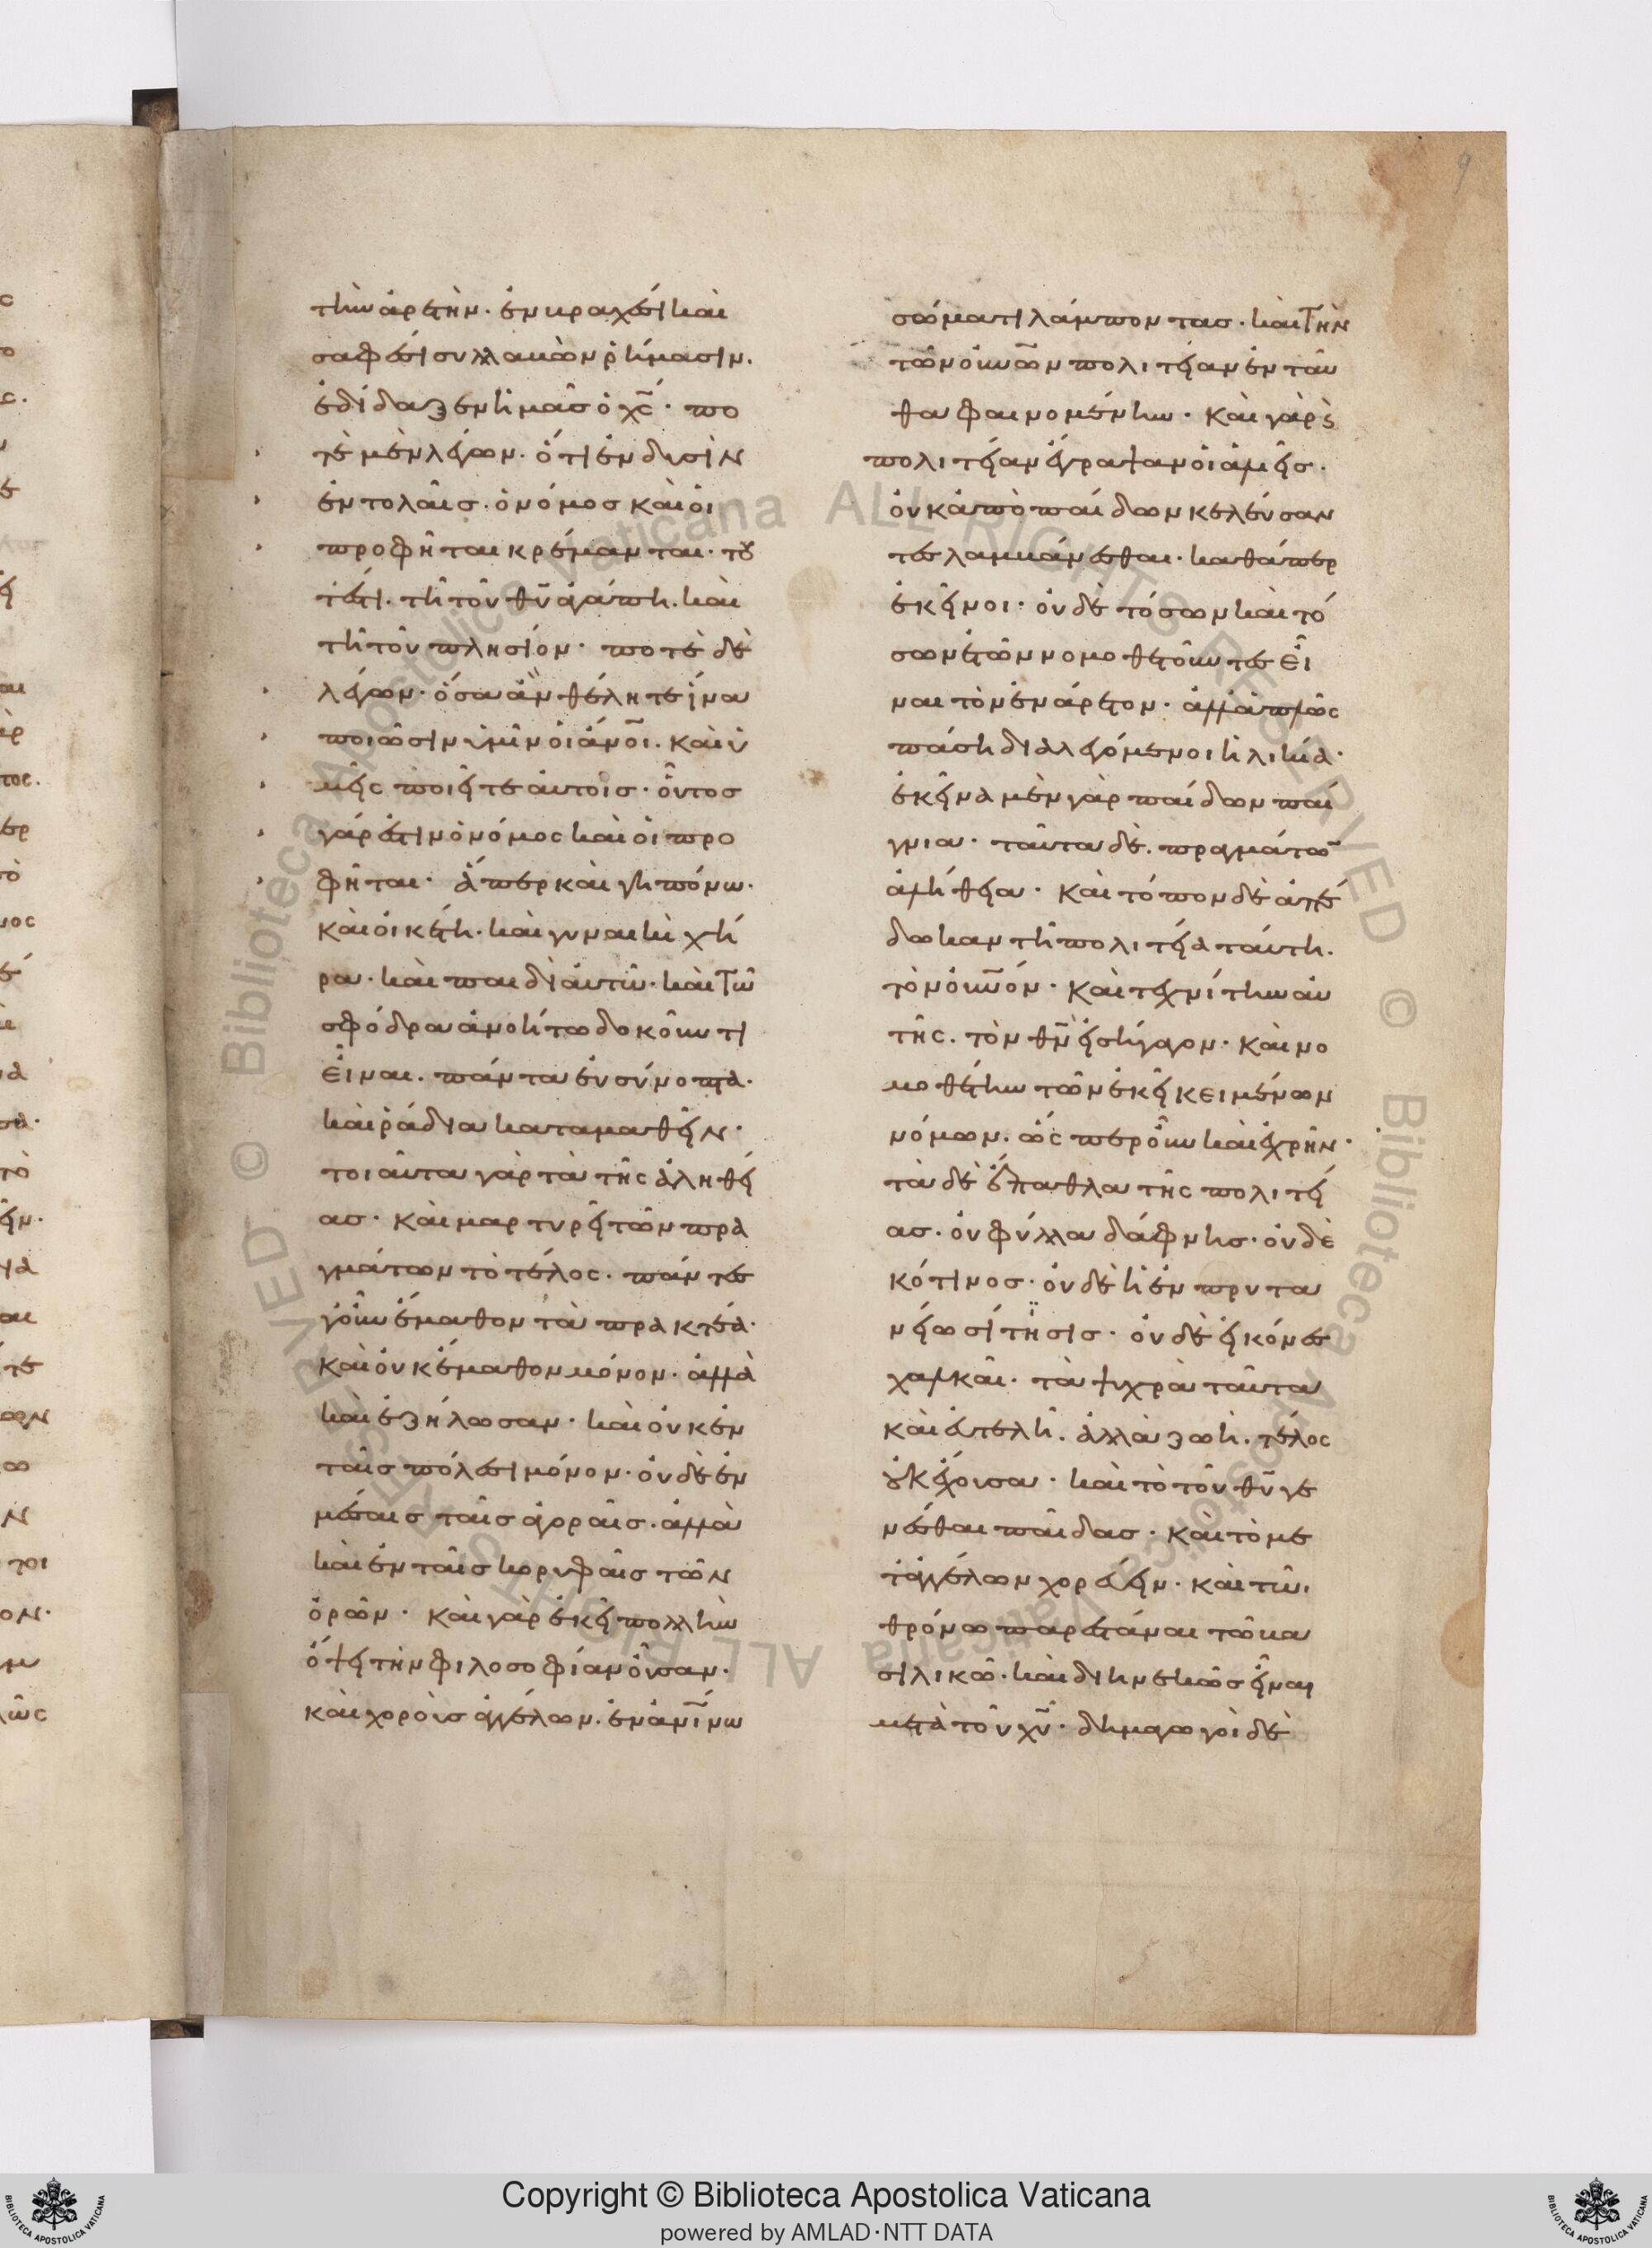 9
τὴν ἀρετὴν· ἐν βραχέσι καὶ
σαφέσι συλλαβῶν ῥήμασιν.
ἐδίδαξεν ἡμᾶς ὁ χς· πο
τὲ μὲν λέγων· ὅτι ἐν δυσὶν
ἐντολαῖς· ὁ νόμος καὶ οἱ
προφῆται κρέμανται· του
τέστι· τῆ τοῦ θυ ἀγάπη· καὶ
τῆ τοῦ πλησίον· ποτὲ δὲ
λέγων· ὅσα ἂν θέλητε ἵνα
ποιῶσιν ὑμῖν οἱ ἄνοι· καὶ ὑ
μεῖς ποιεῖτε αὐτοῖς· οὗτος
γάρ ἐστιν ὁ νόμος καὶ οἱ προ
φῆται· ἅπερ καὶ γηπόνω·
καὶ οἰκέτη· καὶ γυναικὶ χή
ρα· καὶ παιδὶ αὐτῶ· καὶ τῶ
σφόδρα ἀνοήτω δοκοῦντι
εἶναι· πάντα εὐσύνοπτα·
καὶ ῥάδια καταμαθεῖν·
τοιαῦτα γὰρ τὰ τῆς ἀληθεί
ας· καὶ μαρτυρεῖ τῶν πρα
γμάτων τὸ τέλος· πάντες
γοῦν ἔμαθον τὰ πρακτέα·
καὶ οὐκ ἔμαθον μόνον· ἀλλὰ
καὶ ἐζήλωσαν· καὶ οὐκ ἐν
ταῖς πόλεσι μόνον· οὐδὲ ἐν
μέσαις ταῖς ἀγοραῖς· ἀλλὰ
καὶ ἐν ταῖς κορυφαῖς τῶν
ὀρῶν· καὶ γὰρ ἐκεῖ πολλὴν
ὄψει τὴν φιλοσοφίαν οὖσαν·
καὶ χοροὺς ἀγγέλων· ἐν ἀνίνω
σώματι λάμποντας· καὶ τὴν
τῶν οὐνῶν πολιτείαν ἐνταῦ
θα φαινομένην· καὶ γὰρ
πολιτείαν ἔγραψαν οἱ ἁλιεῖς·
οὐκ ἀπὸ παίδων κελεύσαν
τες λαμβάνεσθαι· καθάπερ
ἐκεῖνοι· οὐδὲ τόσων καὶ τό
σων ἐτῶν νομοθετοῦντες εἶ
ναι τὸν ἐνάρετον· ἀλλ' ἁπλῶς
πάση διαλεγόμενοι ἡλικία·
ἐκεῖνα μὲν γὰρ παίδων παί
γνια· ταῦτα δὲ· πραγμάτω
ἀλήθεια· καὶ τόπον δὲ ἀπέ
δωκαν τῆ πολιτεία ταύτη·
τὸν οὐνόν· καὶ τεχνίτην αὐ
τῆς· τὸν θν εἰσήγαγον· καὶ νο
μοθέτην τῶν ἐκεῖ κειμένων
νόμων· ὥσπερ οὖν καὶ ἐχρῆν·
τὰ δὲ ἔπαθλα τῆς πολιτεί
ας· οὐ φύλλα δάφνης· οὐδὲ
κότινος· οὐδὲ ἡ ἐν πρυτα
νείω σίτησις· οὐδὲ εἰκόνες
χαλκαῖ· τὰ ψυχρὰ ταῦτα
καὶ εὐτελῆ· ἀλλὰ ζωὴ· τέλος
οὐκ ἔχουσα· καὶ τὸ τοῦ θυ γε
νέσθαι παῖδας· καὶ τὸ με
τ' ἀγγέλων χορεύειν· καὶ τῶ
θρόνω παρεστάναι τῶ βα
σιλικῶ· καὶ διηνεκῶς εἶναι
μετὰ τοῦ χυ· δημαγωγοὶ δὲ
Copyright © Biblioteca Apostolica Vaticana
powered by AMLAD·NTT DATA